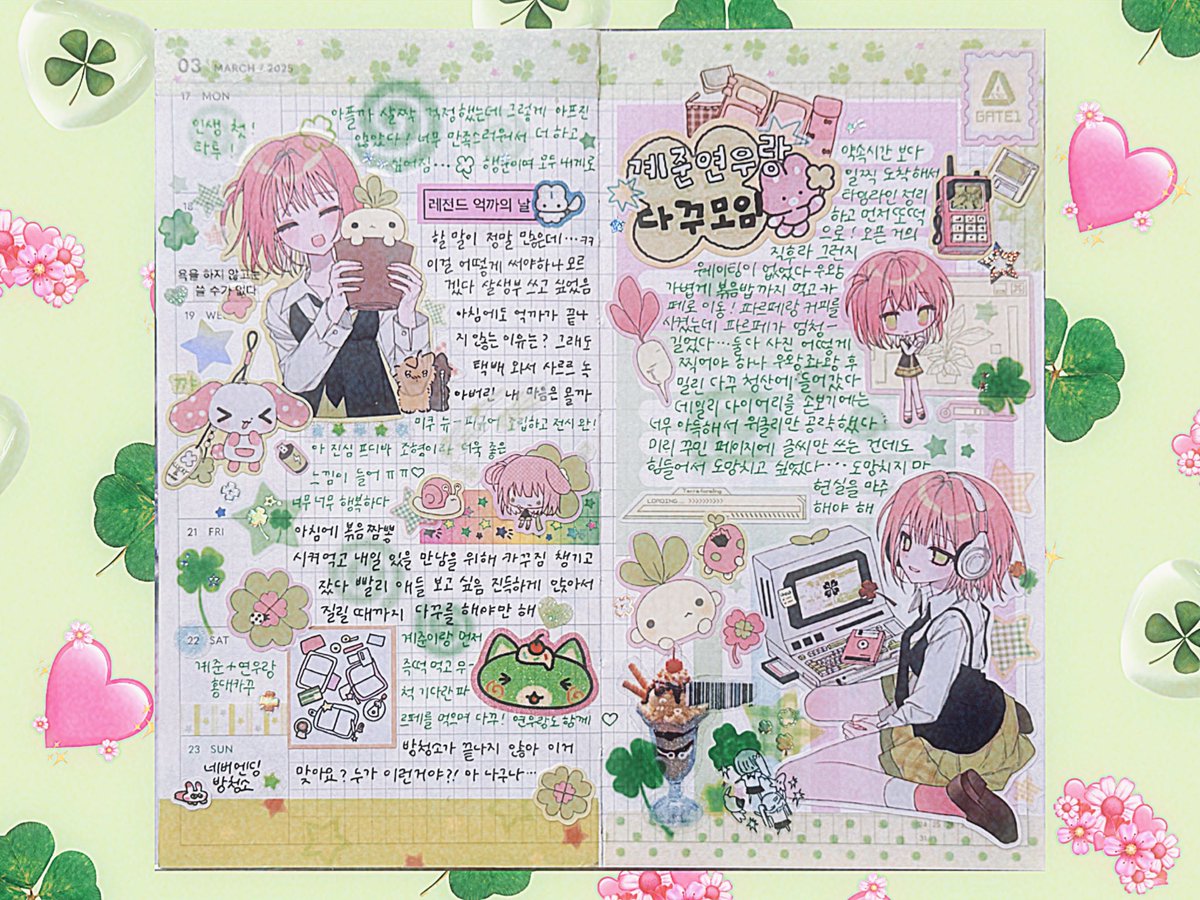 03 MARCH / 2025
17 MON
인생 첫!
타투!!
아플까 살짝 걱정했는데 그렇게 아프진
않았다! 너무 만족스러워서 더 하고
싶어짐... 행운이여 모두 내게로
18
레전드 억까의 날
할 말이 정말 많은데...ㅋㅋ
이걸 어떻게 써야하나 모르
겠다 살생부 쓰고 싶었음
욕을 하지 않고는
쓸 수가 없다
19 WE
아침에도 억까가 끝나
지 않는 이유는? 그래도
택배 와서 사르르 녹
아버린 내 마음은 뭘까
미쿠 뉴- 피규어 조립하고 전시 완!
아 진심 포디바 조형이라 더욱 좋은
느낌이 들어 ㅠㅠ♡
너무너무 행복하다
21 FRI
아침에 볶음짬뽕
시켜먹고 내일 있을 만남을 위해 카꾸짐 챙기고
잤다 빨리 애들 보고 싶음 진득하게 앉아서
질릴 때까지 다꾸를 해야만 해
22 SAT
계준+연우랑
홍대카꾸
계준이랑 먼저
즉떡 먹고 우-
척 기다란 파
르페를 먹으며 다꾸! 연우랑도 함께 ♡
23 SUN
네버엔딩
방청소
방청소가 끝나지 않아 이거
맞아요? 누가 이런거야?! 아 나구나...
GATE1
계준연우랑
다꾸모임
약속시간 보다
일찍 도착해서
타임라인 정리
하고 먼저 또떡
으로! 오픈 거의
직후라 그런지
웨이팅이 없었다 우왕
가볍게 볶음밥까지 먹고 카
페로 이동! 파르페랑 커피를
시켰는데 파르페가 엄청-
길었다...둘다 사진 어떻게
찍어야 하나 우왕좌왕 후
밀린 다꾸 청산에 들어갔다
데일리 다이어리를 손보기에는
너무 아득해서 위클리만 공략했다
미리 꾸민 페이지에 글씨만 쓰는 건데도
힘들어서 도망치고 싶었다... 도망치지 마
현실을 마주
해야 해
LOADING...